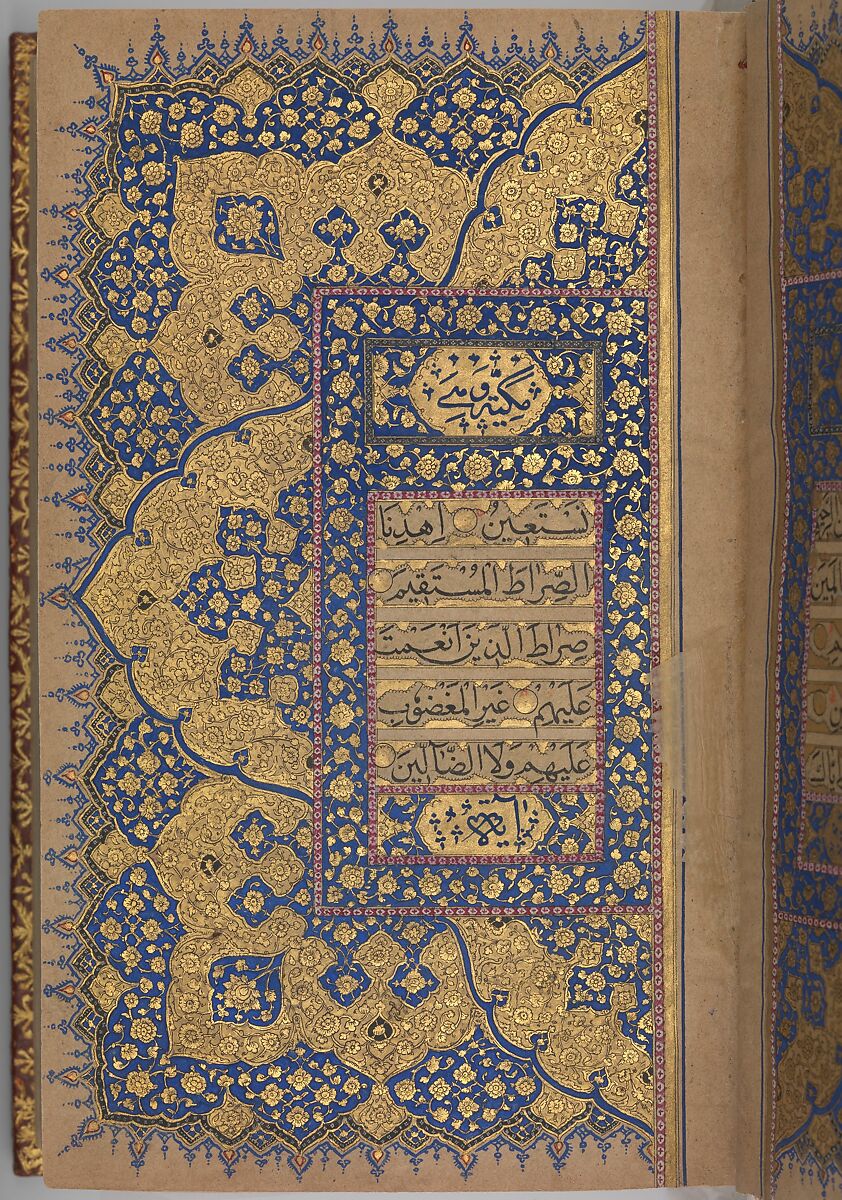 مكيّة وهي
نَسْتَعِينُ اِهْدِنَا
الصِّرَاطَ الْمُسْتَقِيمَ
صِرَاطَ الَّذِينَ اَنْعَمْتَ
عَلَيْهِمْ غَيْرِ الْمَغْضُوبِ
عَلَيْهِمْ وَلَا الضَّالِّينَ